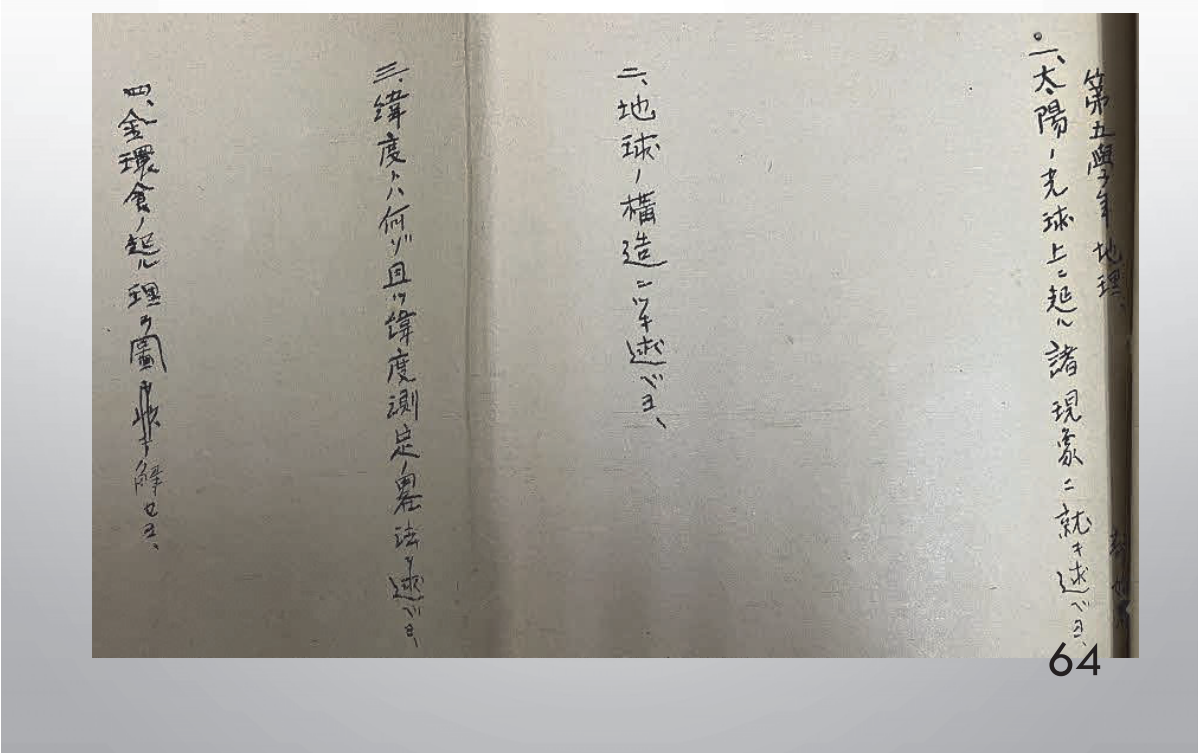 第五學年地理、
一、太陽ノ光球上ニ起ル諸現象ニ就キ述ベヨ、
二、地球ノ構造ニツキ述ベヨ、
三、緯度トハ何ゾ且ツ緯度測定ノ畧法ヲ述ベヨ、
四、金環食ノ起ル理ヲ圖 解セヨ、
64